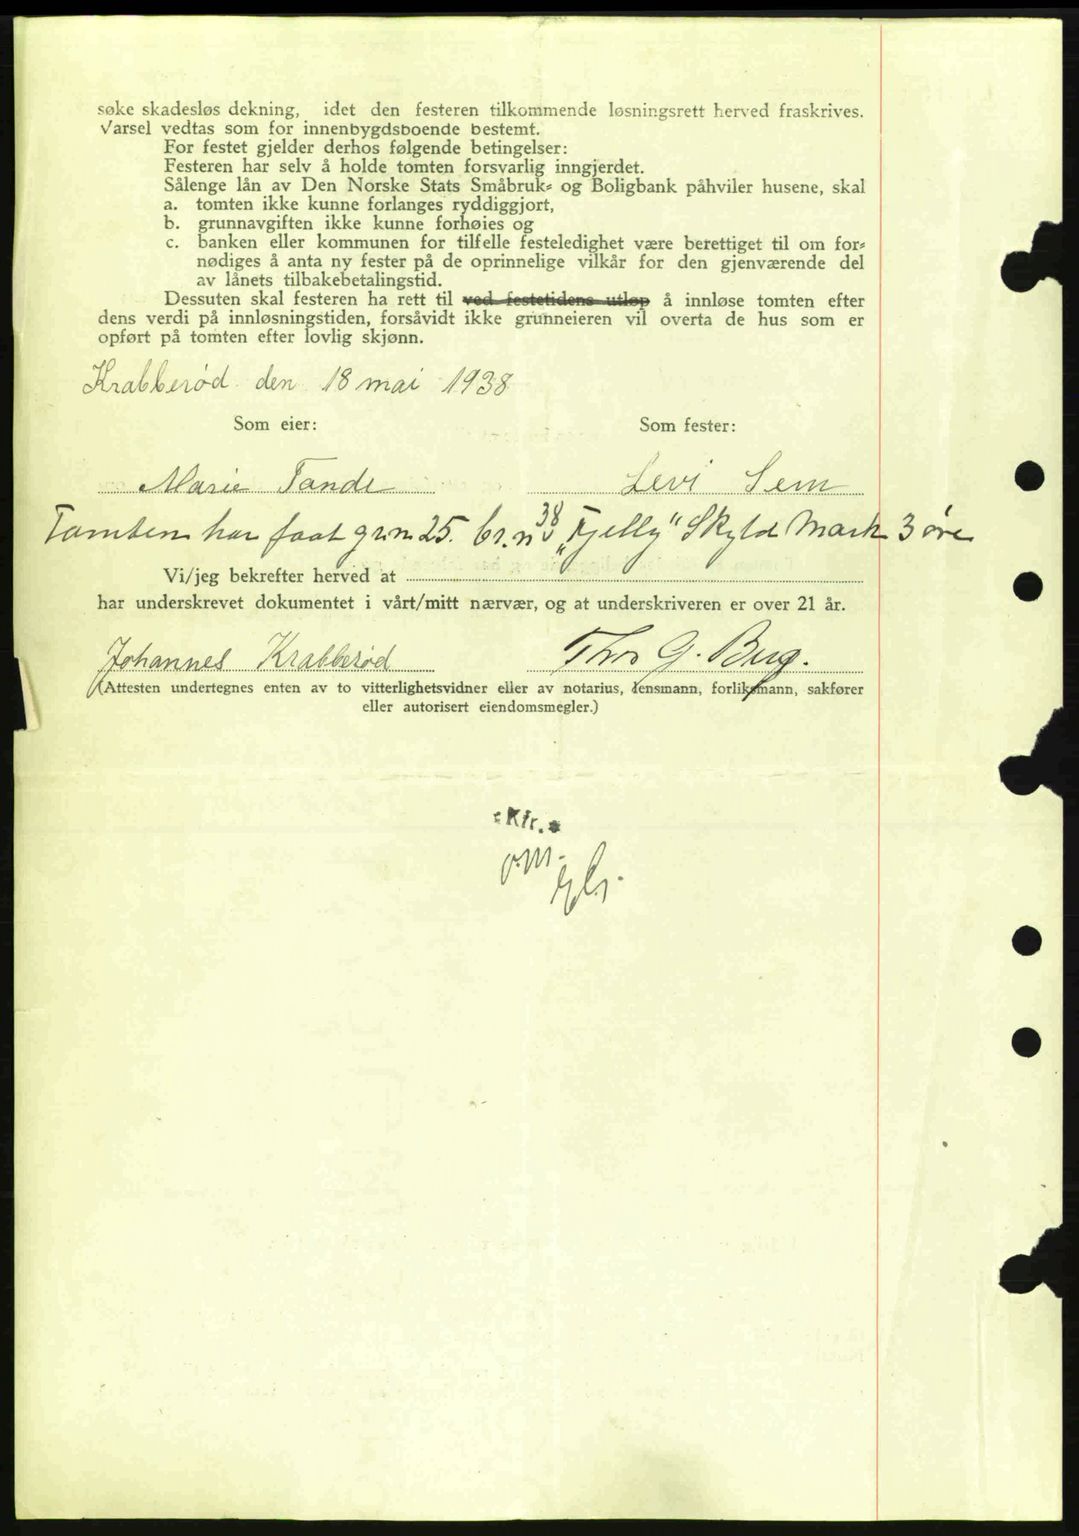 søke skadesløs dekning, idet den festeren tilkommende løsningsrett herved fraskrives.
Varsel vedtas som for innenbygdsboende bestemt.
For festet gjelder derhos følgende betingelser:
Festeren har selv å holde tomten forsvarlig inngjerdet.
Sålenge lån av Den Norske Stats Småbruk- og Boligbank påhviler husene, skal
a. tomten ikke kunne forlanges ryddiggjort,
b. grunnavgiften ikke kunne forhøies og
c. banken eller kommunen for tilfelle festeledighet være berettiget til om for-
nødiges å anta ny fester på de oprinnelige vilkår for den gjenværende del
av lånets tilbakebetalingstid.
Dessuten skal festeren ha rett til ved festetidens utløp å innløse tomten efter
dens verdi på innløsningstiden, forsåvidt ikke grunneieren vil overta de hus som er
opført på tomten efter lovlig skjønn.
Krabberød den 18 mai 1938
Som eier: Som fester:
Marie Tande Levi Sem
Tomten har faat gr.n 25. br.n 38 „Fjelly" Skyld Mark 3 øre
Vi/jeg bekrefter herved at
har underskrevet dokumentet i vårt/mitt nærvær, og at underskriveren er over 21 år.
Johannes Krabberød Thor G. Berg.
(Attesten undertegnes enten av to vitterlighetsvidner eller av notarius, lensmann, forliksmann, sakfører
eller autorisert eiendomsmegler.)
Kfr.